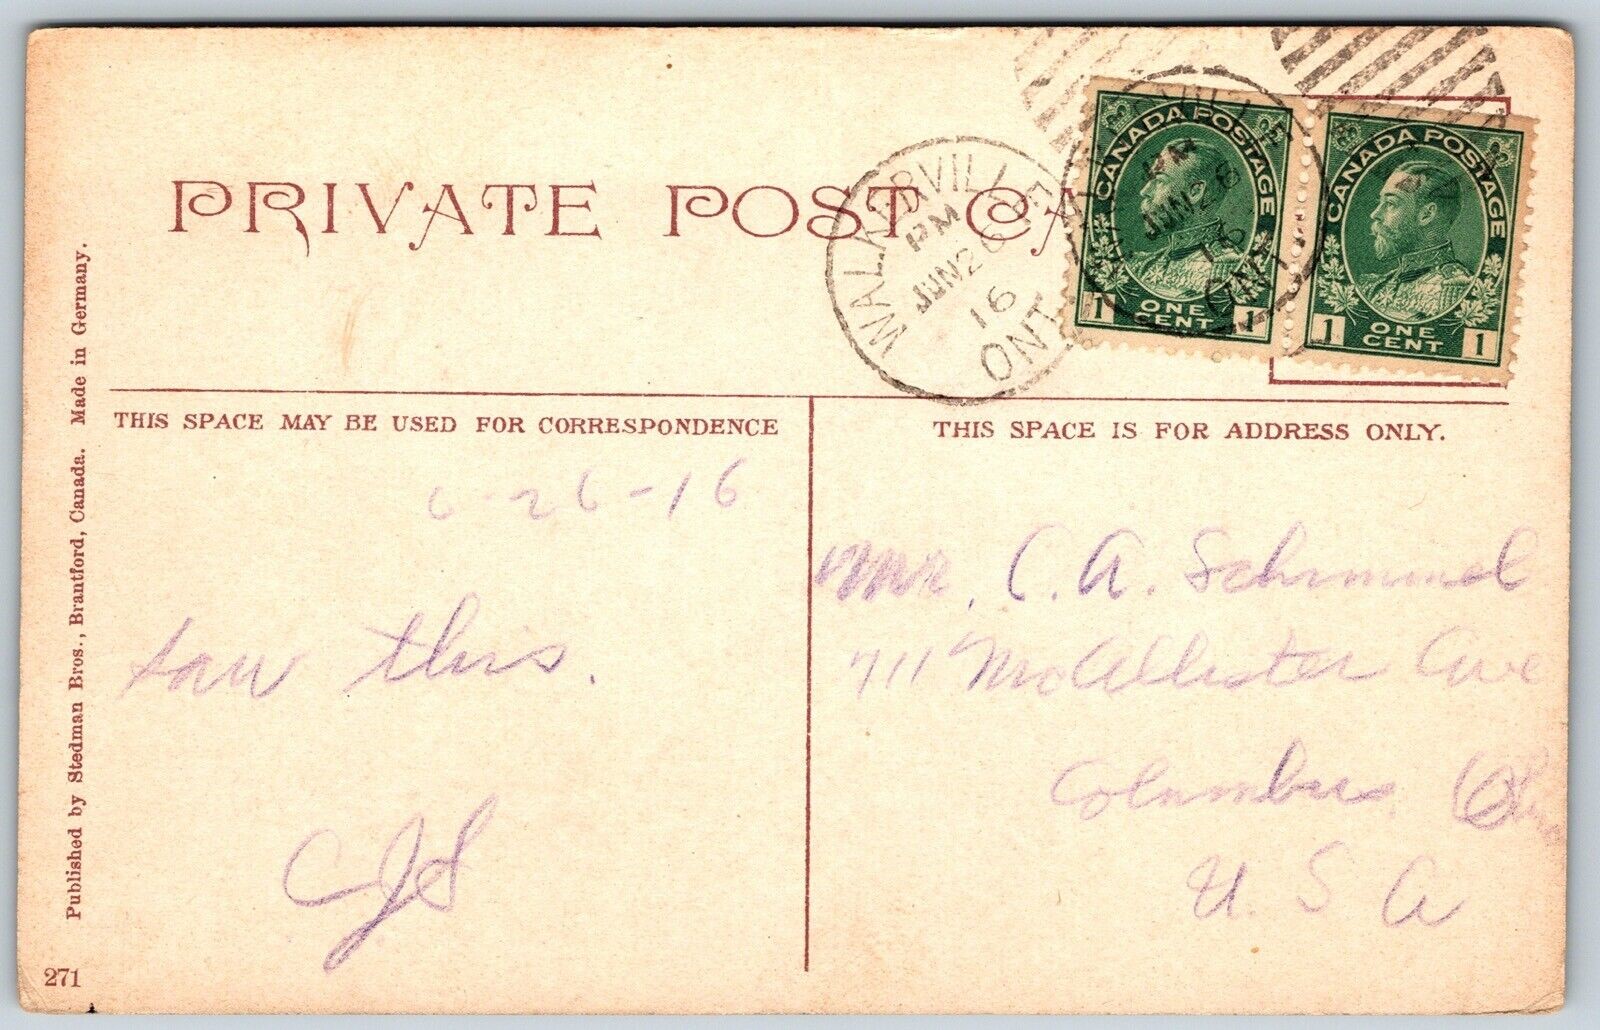 PRIVATE POST CA
WALKERVILLE
PM
JUN 26
16
ONT
PM
JUN 26
16
ONT
CANADA POSTAGE
1 ONE CENT 1
CANADA POSTAGE
1 ONE CENT 1
THIS SPACE MAY BE USED FOR CORRESPONDENCE
6-26-16
saw this.
CJS
THIS SPACE IS FOR ADDRESS ONLY.
Mr. C. A. Schimmel
711 McAllister Ave
Columbus, Ohio
U. S A
Published by Stedman Bros., Brantford, Canada. Made in Germany.
271